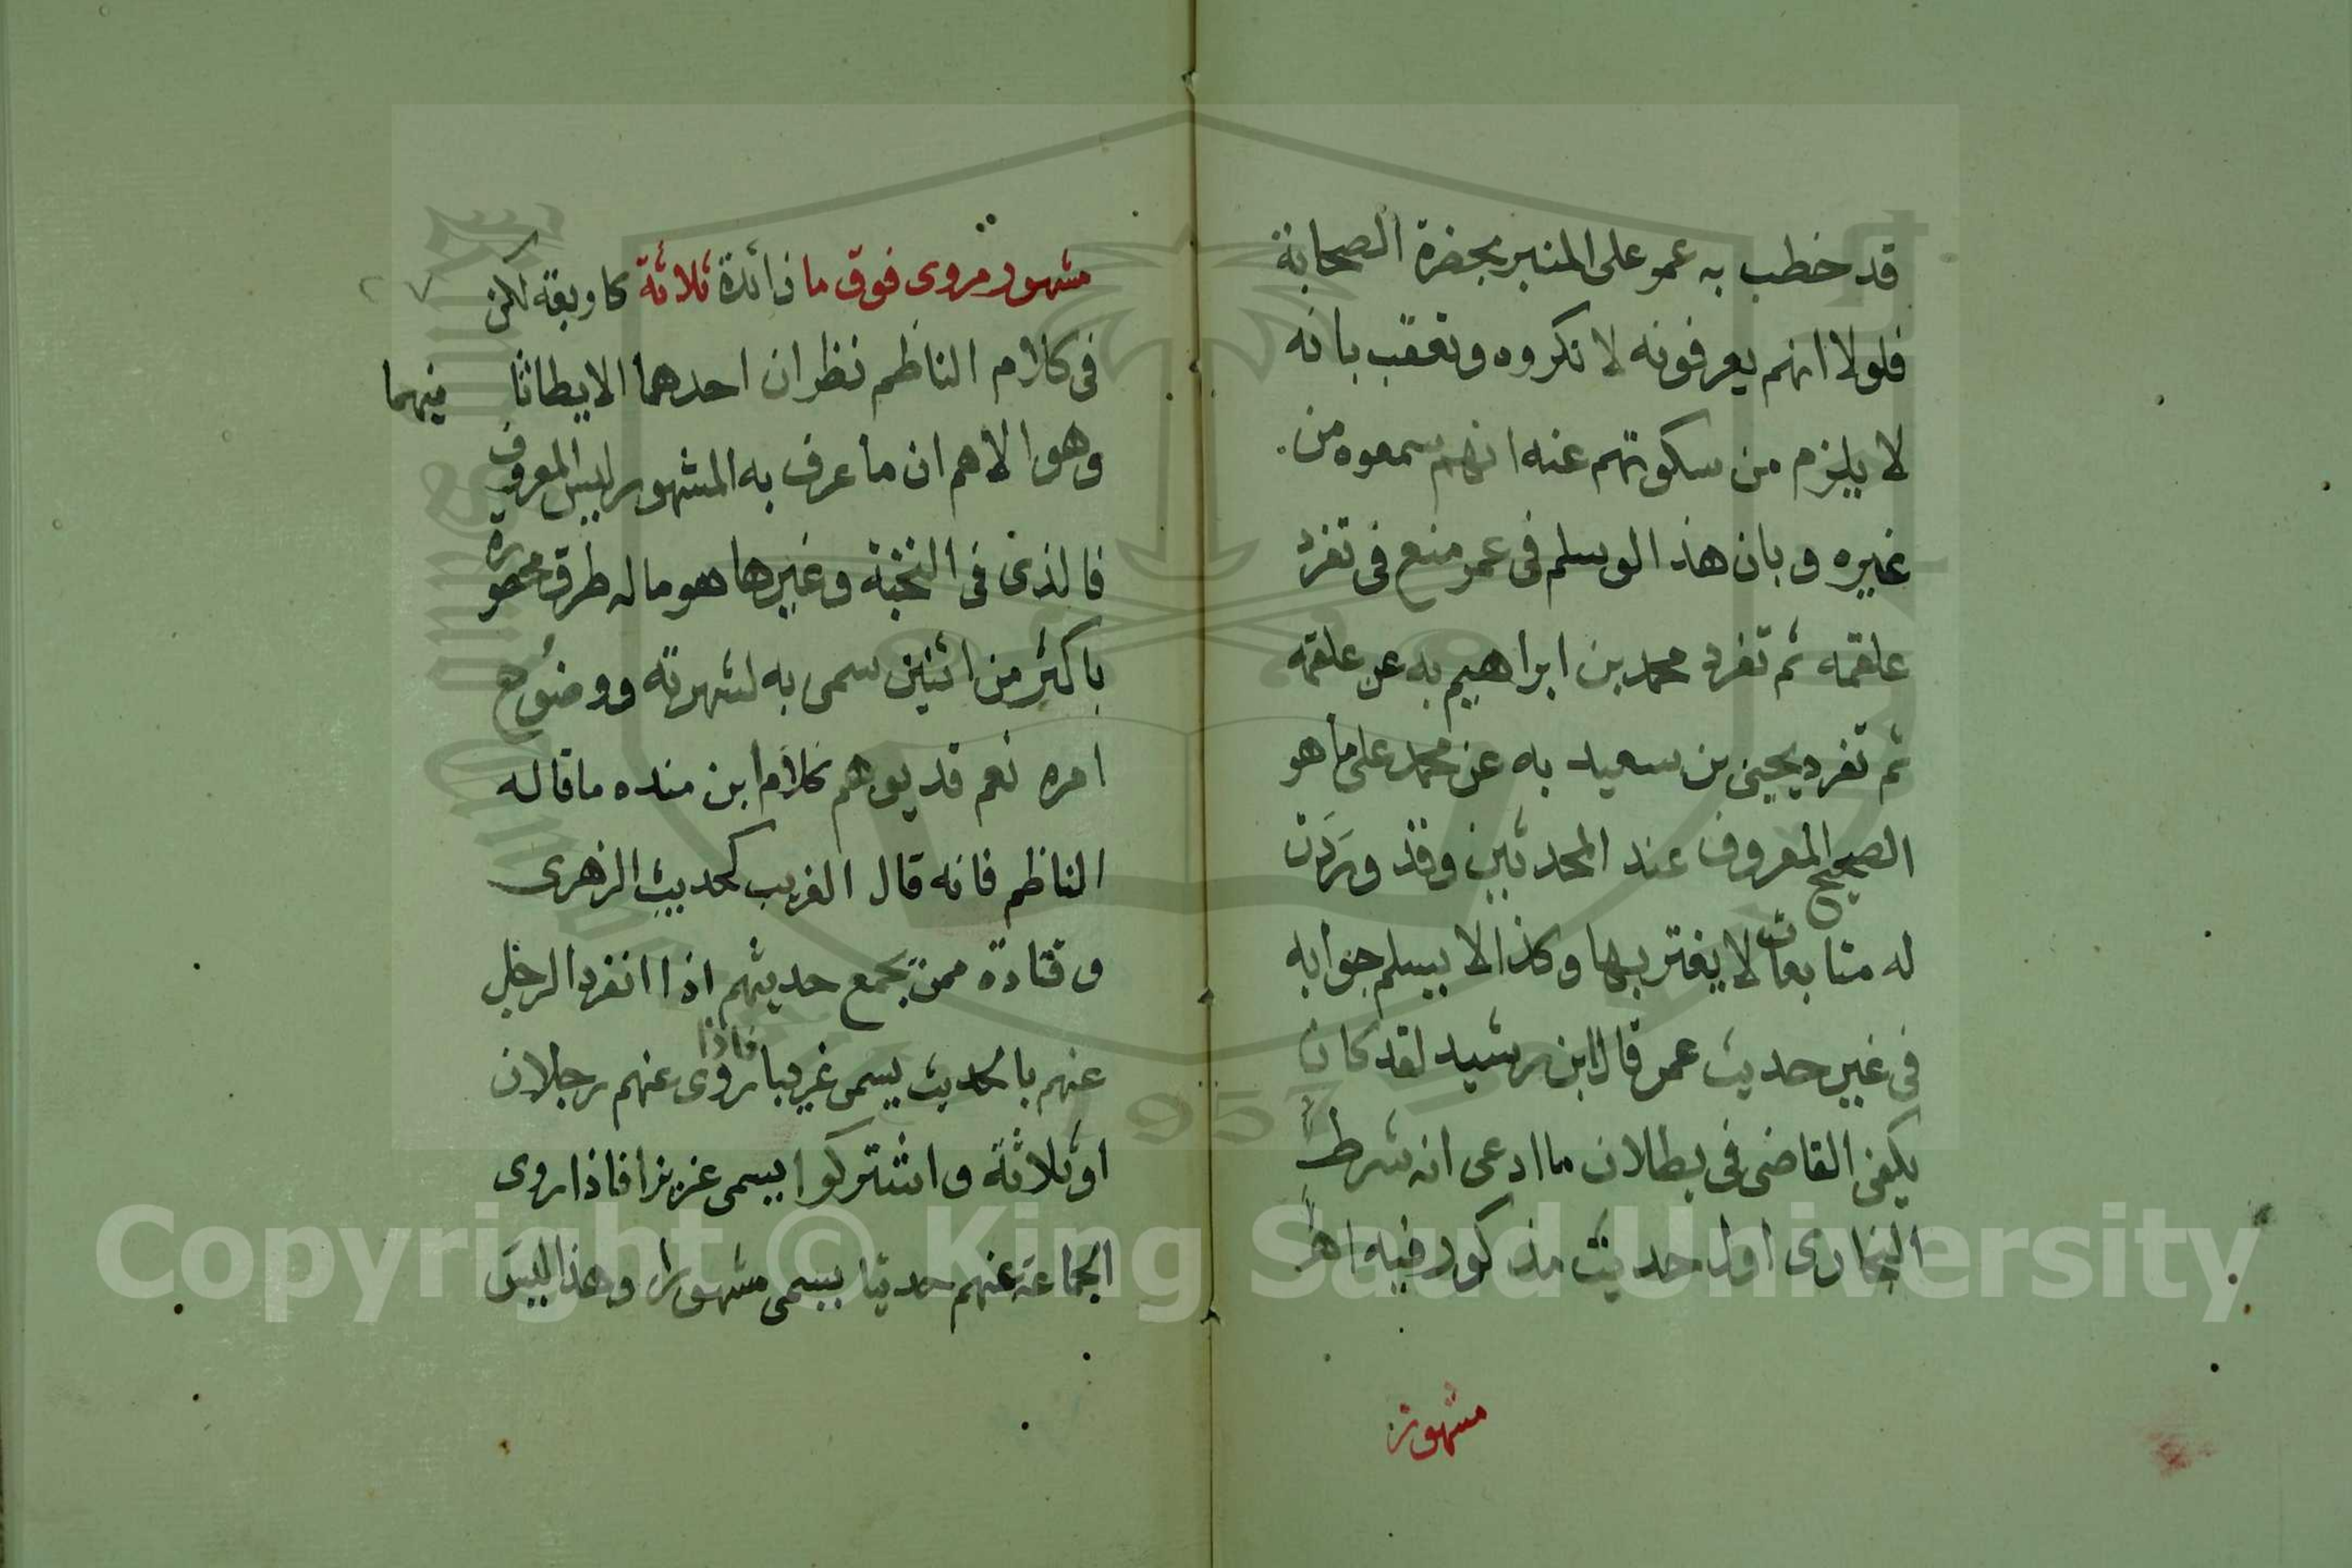 قد خطب به عمر على المنبر بحضرة الصحابة
فلولا انهم يعرفونه لانكروه وتعقب بانه
لا يلزم من سكوتهم عنه انهم سمعوه من
غيره وبان هذا لوسلم في عمر منع في تفرد
علقمه ثم تفرد محمد بن ابراهيم به عن علقمه
ثم تفرد يحيى بن سعيد به عن محمد على ما هو
الصحيح المعروف عند المحدثين وقد وردت
له متابعات لا يعتر بها وكذا لا يسلم جوابه
في غير حديث عمر قال ابن رشيد لقد كان
يكفى القاضى في بطلان ما ادعى انه شرط
البخارى اول حديث مذكور فيه اهـ
مشهور
مشهور مروى فوق ما زائدة ثلاثة كاربعة لكن
في كلام الناظم نظران احدهما الايطا ثا فيهما
وهو الاهم ان ما عرف به المشهور ليس المعروف
فالذى في النخبة وغيرها هو ما له طرق محصورة
باكثر من اثنين سمى به لشهرته ووضوح
امره نعم قد يوهم كلام ابن منده ما قاله
الناظم فانه قال الغريب كحديث الزهرى
وقتادة ممن يجمع حديثهم اذا انفرد الرجل
عنهم بالحديث يسمى غريبا فاذا روى عنهم رجلان
او ثلاثة واشتركوا يسمى عزيزا فاذا روى
الجماعة عنهم حديثا يسمى مشهورا وهذا ليس
Copyright © King Saud University
1957